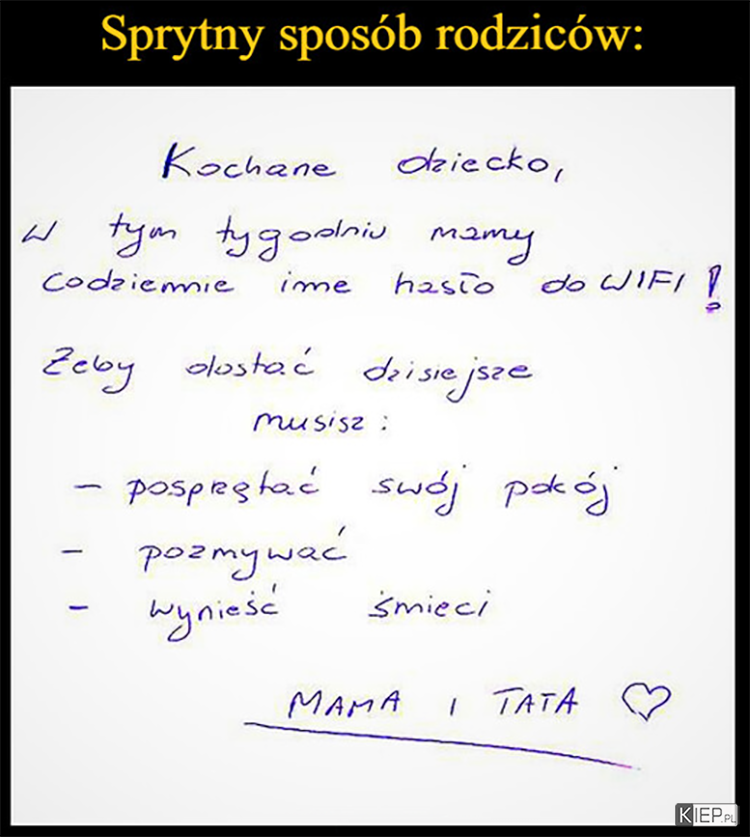 Sprytny sposób rodziców:
Kochane dziecko,
W tym tygodniu mamy
codziennie inne hasło do WIFI!
Żeby dostać dzisiejsze
musisz:
- posprzątać swój pokój
- pozmywać
- wynieść śmieci
MAMA I TATA ♡
KIEP.PL